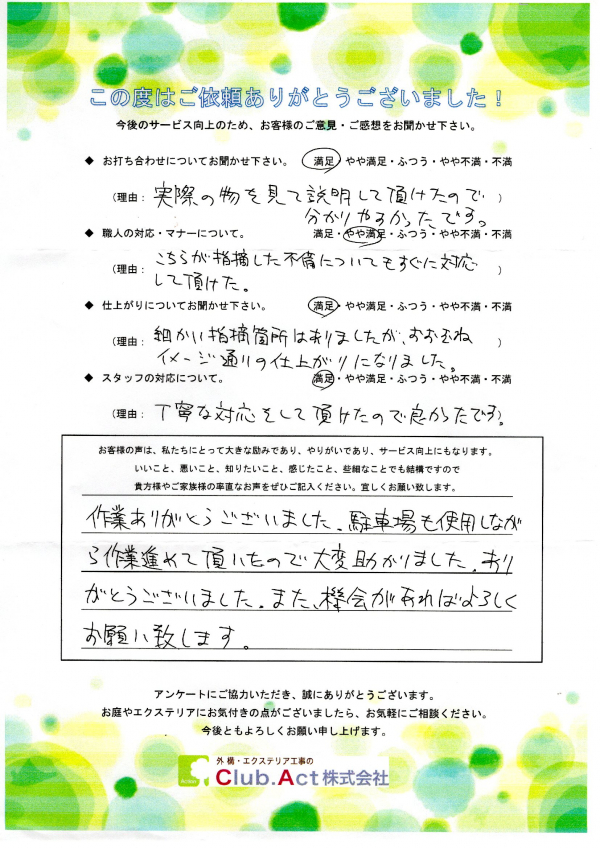 この度はご依頼ありがとうございました！
今後のサービス向上のため、お客様のご意見・ご感想をお聞かせ下さい。
◆ お打ち合わせについてお聞かせ下さい。 満足・やや満足・ふつう・やや不満・不満
（理由： 実際の物を見て説明して頂けたので ）
分かりやすかったです。
◆ 職人の対応・マナーについて。 満足・やや満足・ふつう・やや不満・不満
（理由： こちらが指摘した不備についてもすぐに対応 ）
して頂けた。
◆ 仕上がりについてお聞かせ下さい。 満足・やや満足・ふつう・やや不満・不満
（理由： 細かい指摘箇所はありましたが、おおむね ）
イメージ通りの仕上がりになりました。
◆ スタッフの対応について。 満足・やや満足・ふつう・やや不満・不満
（理由： 丁寧な対応をして頂けたので良かったです。）
お客様の声は、私たちにとって大きな励みであり、やりがいであり、サービス向上にもなります。
いいこと、悪いこと、知りたいこと、感じたこと、些細なことでも結構ですので
貴方様やご家族様の率直なお声をぜひご記入ください。宜しくお願い致します。
作業ありがとうございました。駐車場も使用しなが
ら作業進めて頂いたので大変助かりました。あり
がとうございました。また、機会があればよろしく
お願い致します。
アンケートにご協力いただき、誠にありがとうございます。
お庭やエクステリアにお気付きの点がございましたら、お気軽にご相談ください。
今後ともよろしくお願い申し上げます。
外構・エクステリア工事の
Club.Act株式会社